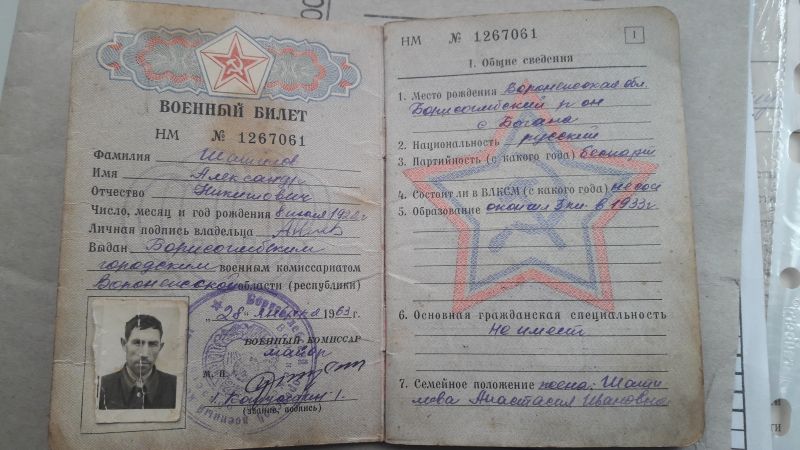 ВОЕННЫЙ БИЛЕТ
НМ № 1267061
Фамилия
Имя Александр
Отчество Никитович
Число, месяц и год рождения 8 1922г
Личная подпись владельца
Выдан Борисоглебским
городским военным комиссариатом
Воронежской области (республики)
„28“ января 1963 г.
ВОЕННЫЙ КОМИССАР
майор
М. П.
(звание, подпись)
НМ № 1267061 1
I. Общие сведения
1. Место рождения Воронежская обл.
Борисоглебский р-он
с Богана
2. Национальность русский
3. Партийность (с какого года) беспарт
4. Состоит ли в ВЛКСМ (с какого года) не сост
5. Образование окончил 3 кл. в 1933г
6. Основная гражданская специальность
Не имеет
7. Семейное положение жена:
Анастасия Ивановна